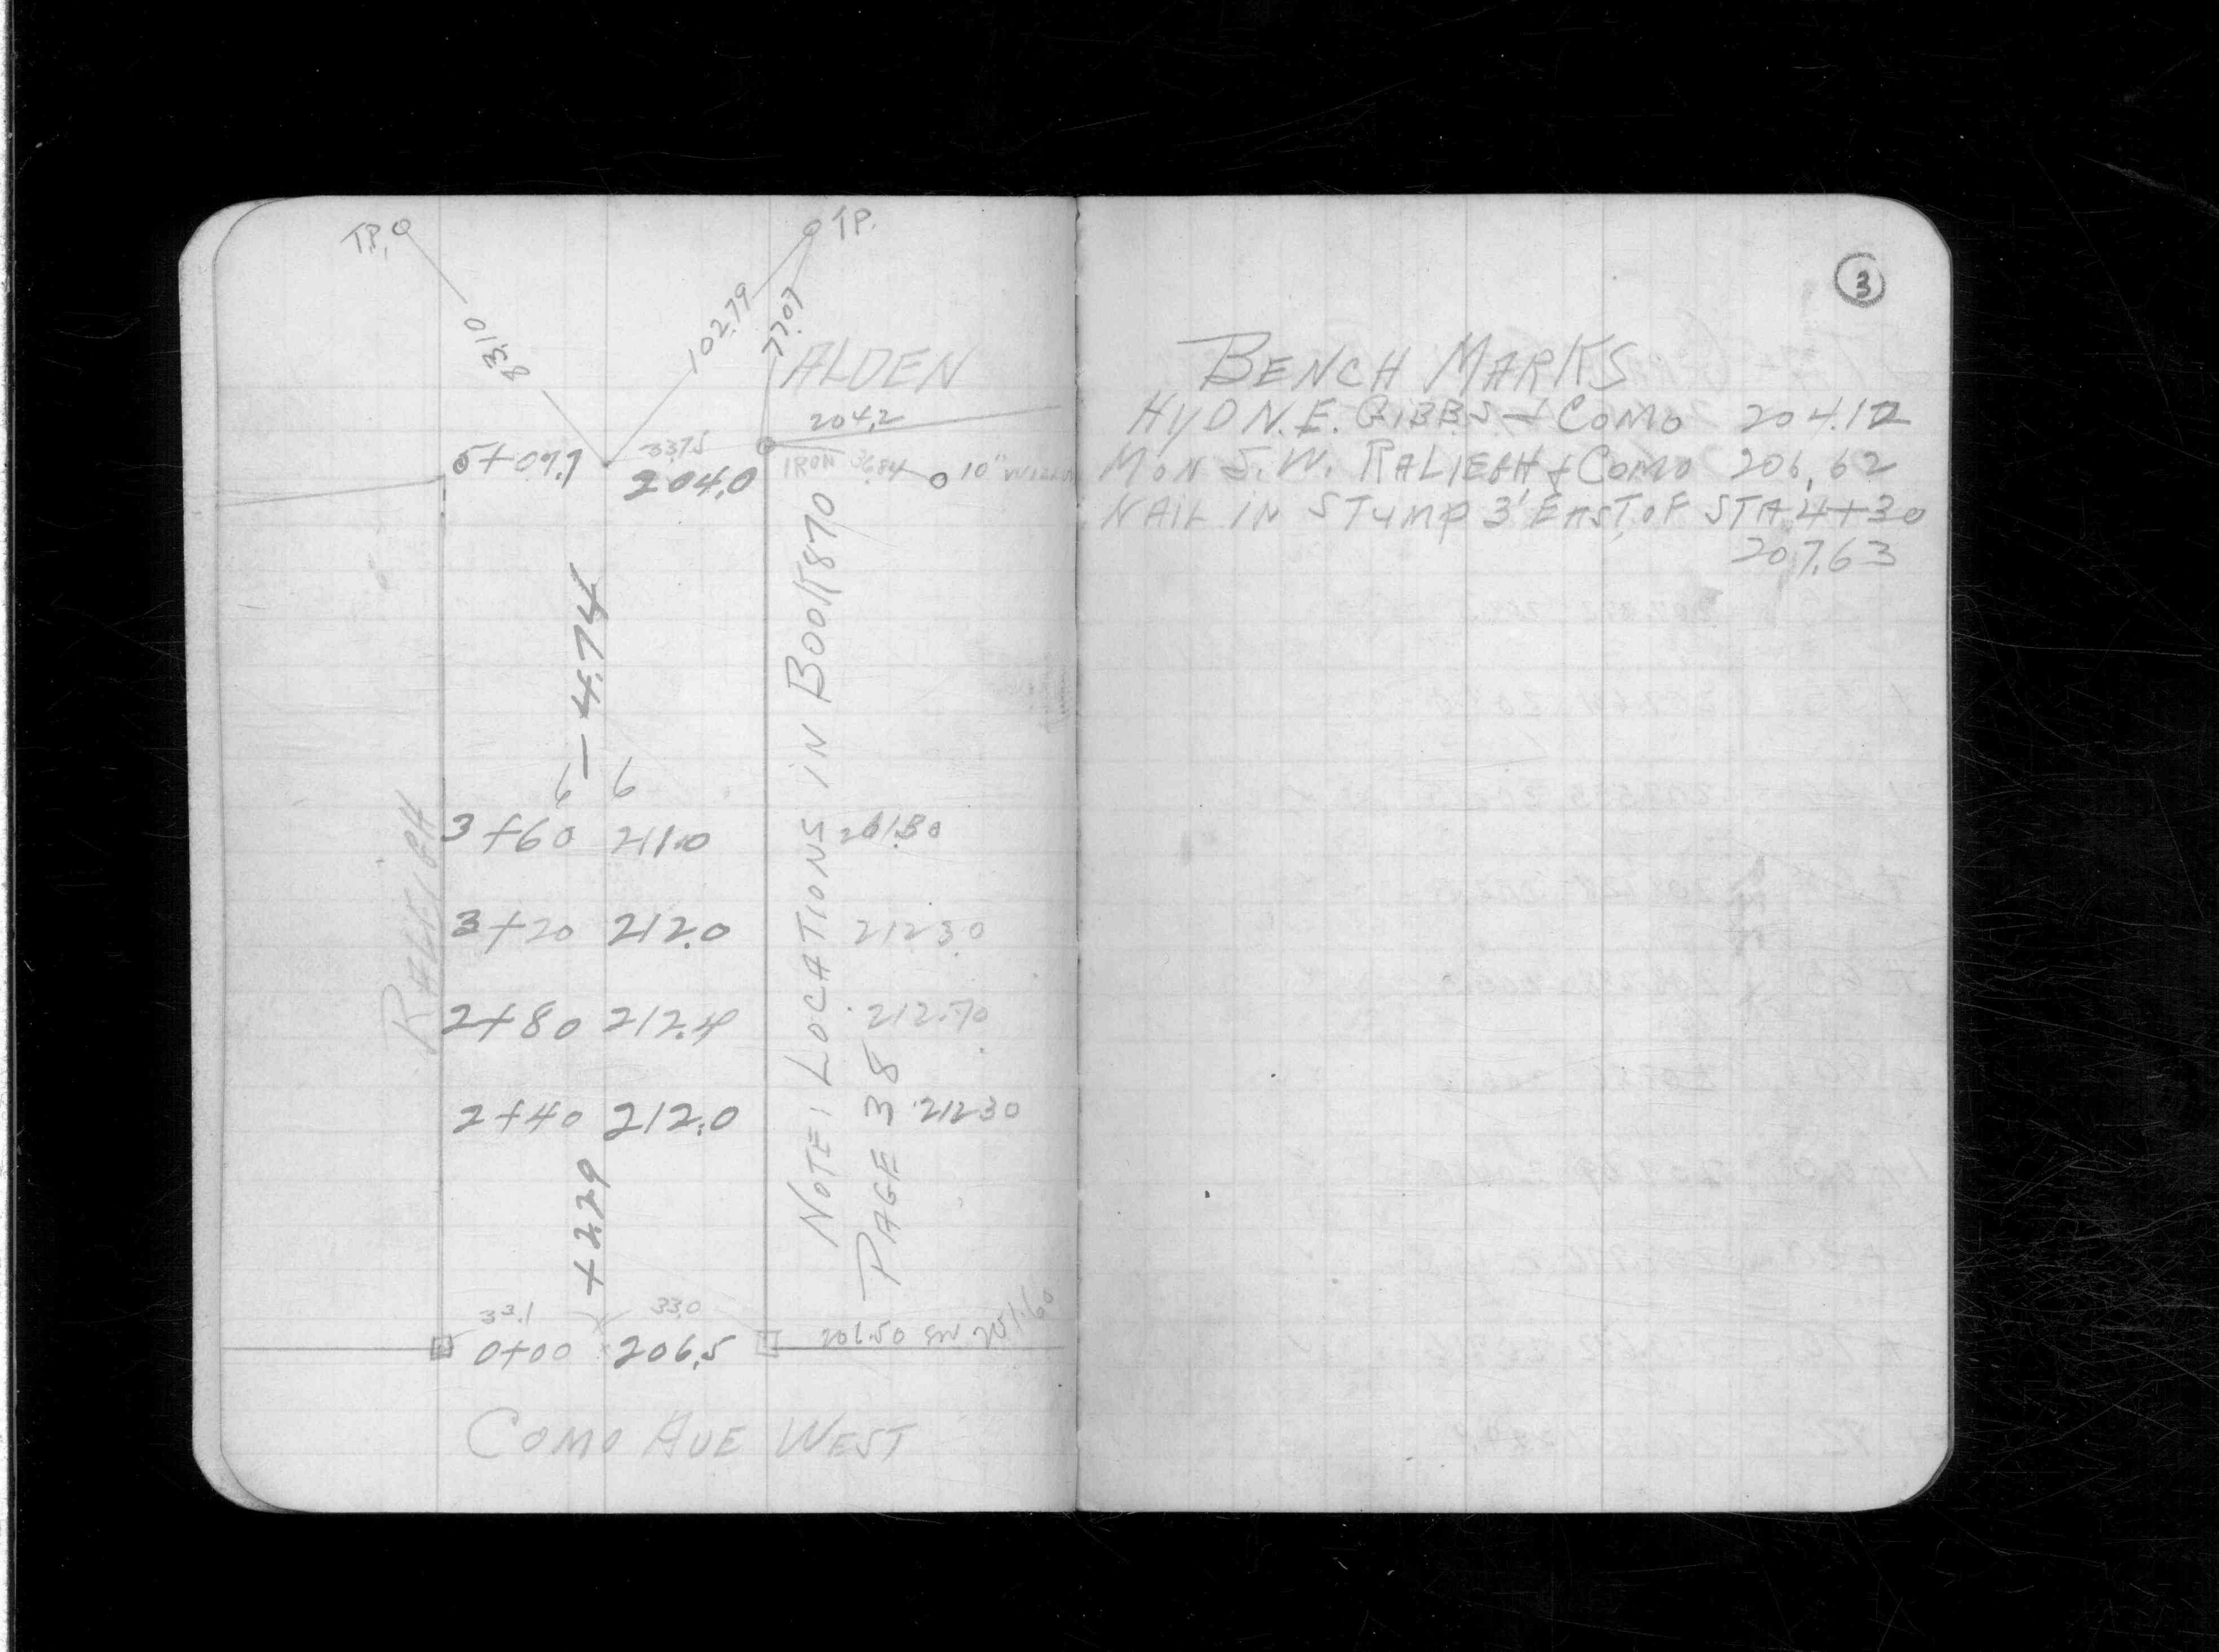 T.P.
T.P.
83.10
102.79
77.07
ALDEN
204.2
5+07.7
33.75
204.0
IRON 36.84
10"
- 4.74
6 6
RALEIGH
3+60 211.0
3+20 212.0 212 30
2+80 212.4 212.70
2+40 212.0 212 30
NOTE: LOCATIONS IN BOOK 870
PAGE 38
+2.29
33.1 33.0
0+00 206.5
COMO AVE WEST
3
BENCH MARKS
HYD N.E. GIBBS + COMO 204.12
MON S.W. RALIEGH + COMO 206.62
NAIL IN STUMP 3' EAST OF STA 4+30
207.63